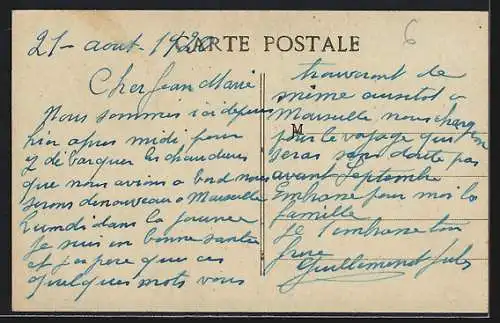 21 - aout - 1920
CARTE POSTALE
6
Cher Jean Marie
Nous sommes ici depuis
hier apres midi pour
y débarquer les chaudieres
que nous avions a bord nous
serons denouveau a Marseille
Lundi dans la journee
Je suis en bonne santée
et j'espere que ces
quelques mots vous
trouveront de
même aussitot a
Marseille nous charg
M
pour le voyage qui
seras sans doute pas
avant Septembre
Embrasse pour moi la
famille
Je t'embrasse ton
frere
Guillemenot Jules